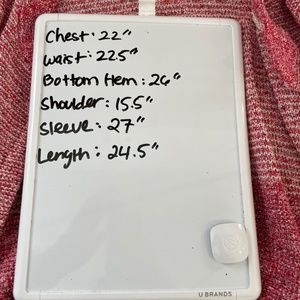 Chest: 22"
Waist: 22.5"
Bottom Hem: 26"
Shoulder: 15.5"
Sleeve: 27"
Length: 24.5"
U BRANDS